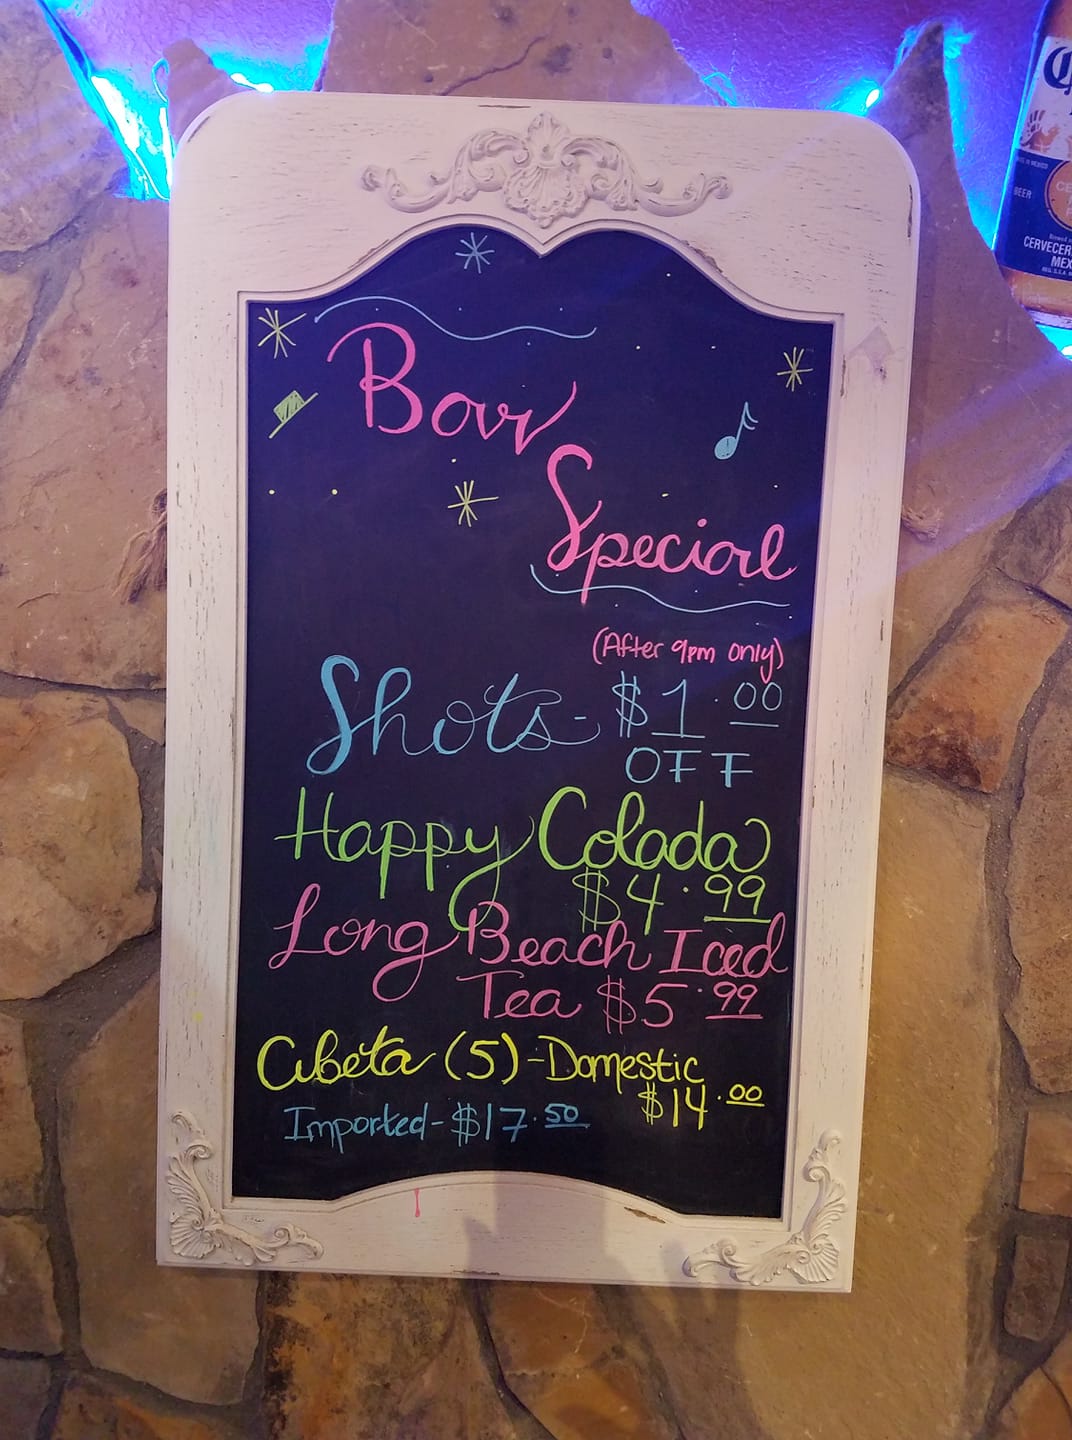 Bar
Special
(After 9pm only)
Shots- $1.00
OFF
Happy Colada
$4.99
Long Beach Iced
Tea $5.99
Cubeta (5)-Domestic
$14.00
Imported-$17.50
BEER
CERVECER
MEX